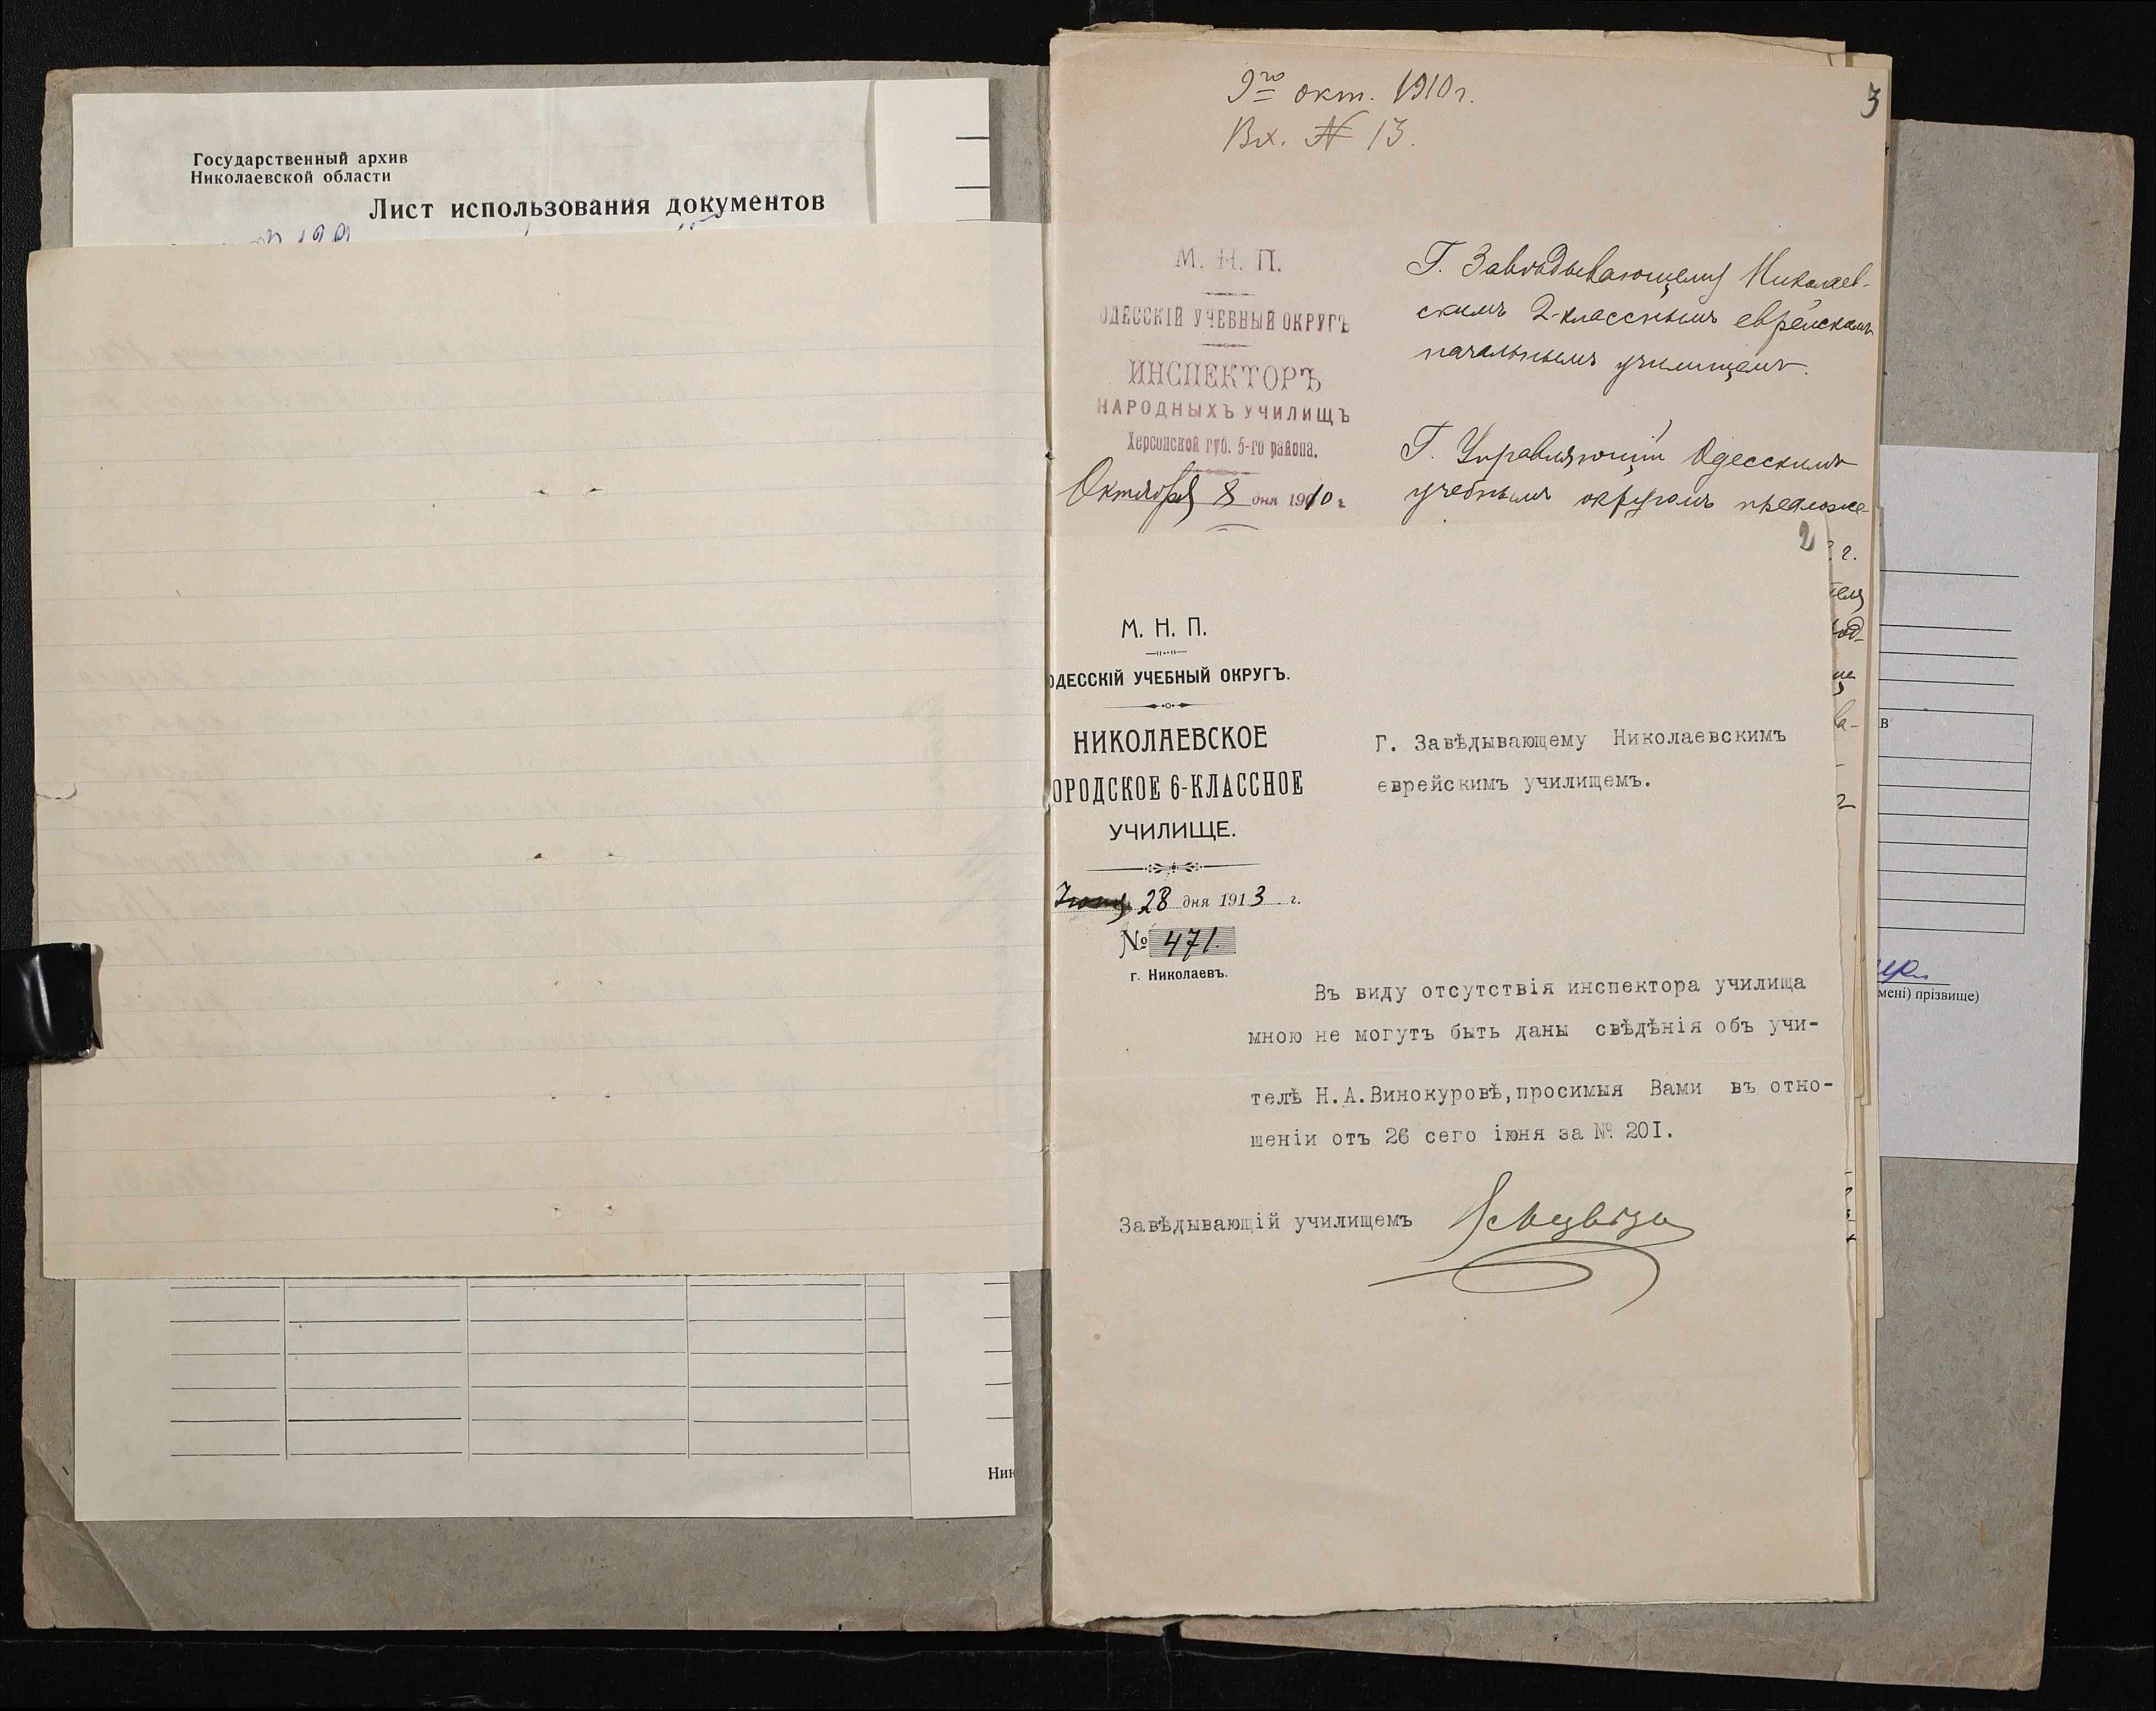 Государственный архив
Николаевской области
Лист использования документов
Ник
9го окт. 1910 г.
Вх. № 13.
3
М. Н. П.
ОДЕССКІЙ УЧЕБНЫЙ ОКРУГЪ
ИНСПЕКТОРЪ
НАРОДНЫХЪ УЧИЛИЩЪ
Херсонской губ. 5-го района.
Октября 8 дня 1910 г.
Г. Завѣдывающему Николаев-
скимъ 2-класснымъ еврейскимъ
начальнымъ училищемъ.
Г. Управляющій Одесскимъ
учебнымъ округомъ предложе-
2
М. Н. П.
ОДЕССКІЙ УЧЕБНЫЙ ОКРУГЪ.
НИКОЛАЕВСКОЕ
ОРОДСКОЕ 6-КЛАССНОЕ
УЧИЛИЩЕ.
28 дня 1913 г.
№ 471.
г. Николаевъ.
Г. Завѣдывающему Николаевскимъ
еврейскимъ училищемъ.
Въ виду отсутствія инспектора училища
мною не могутъ быть даны свѣдѣнія объ учи-
телѣ Н.А.Винокуровѣ,просимыя Вами въ отно-
шеніи отъ 26 сего іюня за № 20I.
Завѣдывающій училищемъ
в
мені) прізвище)